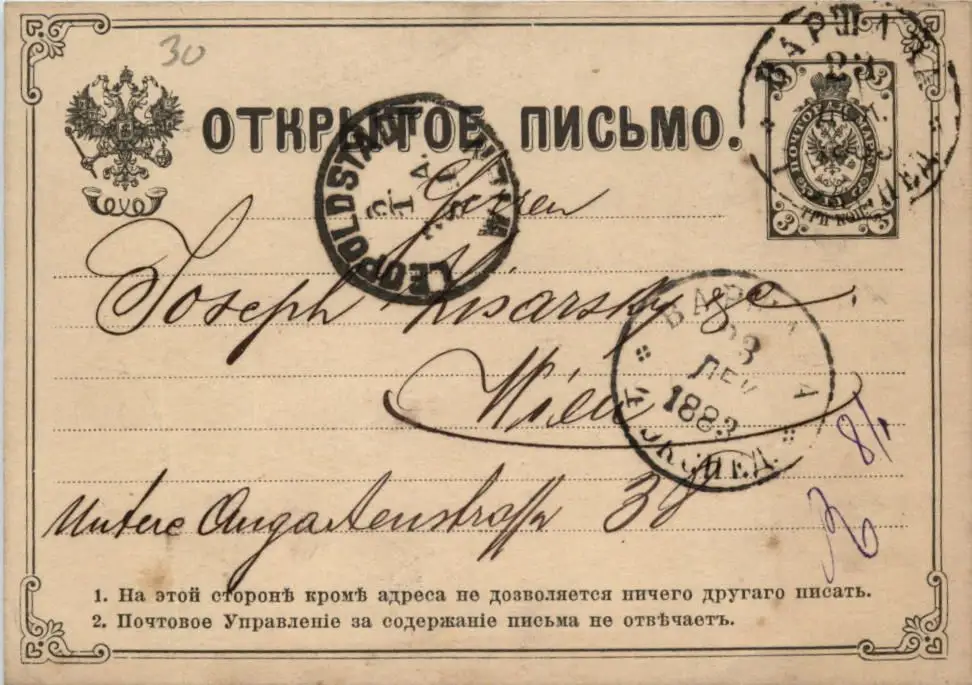 30
ВАРШАВА
23
ПОЧТОВАЯ МАРКА
3 ТРИ КОП. 3
ОТКРЫТОЕ ПИСЬМО.
LEOPOLDSTADT WIEN
Herren
Joseph Kisarsky & C.
Wien
ВАРШАВА
23
ДЕК
1883
ЭКСПЕД.
Untere Augartenstrasse 38
8/1
1. На этой сторонѣ кромѣ адреса не дозволяется ничего другаго писать.
2. Почтовое Управленіе за содержаніе письма не отвѣчаетъ.